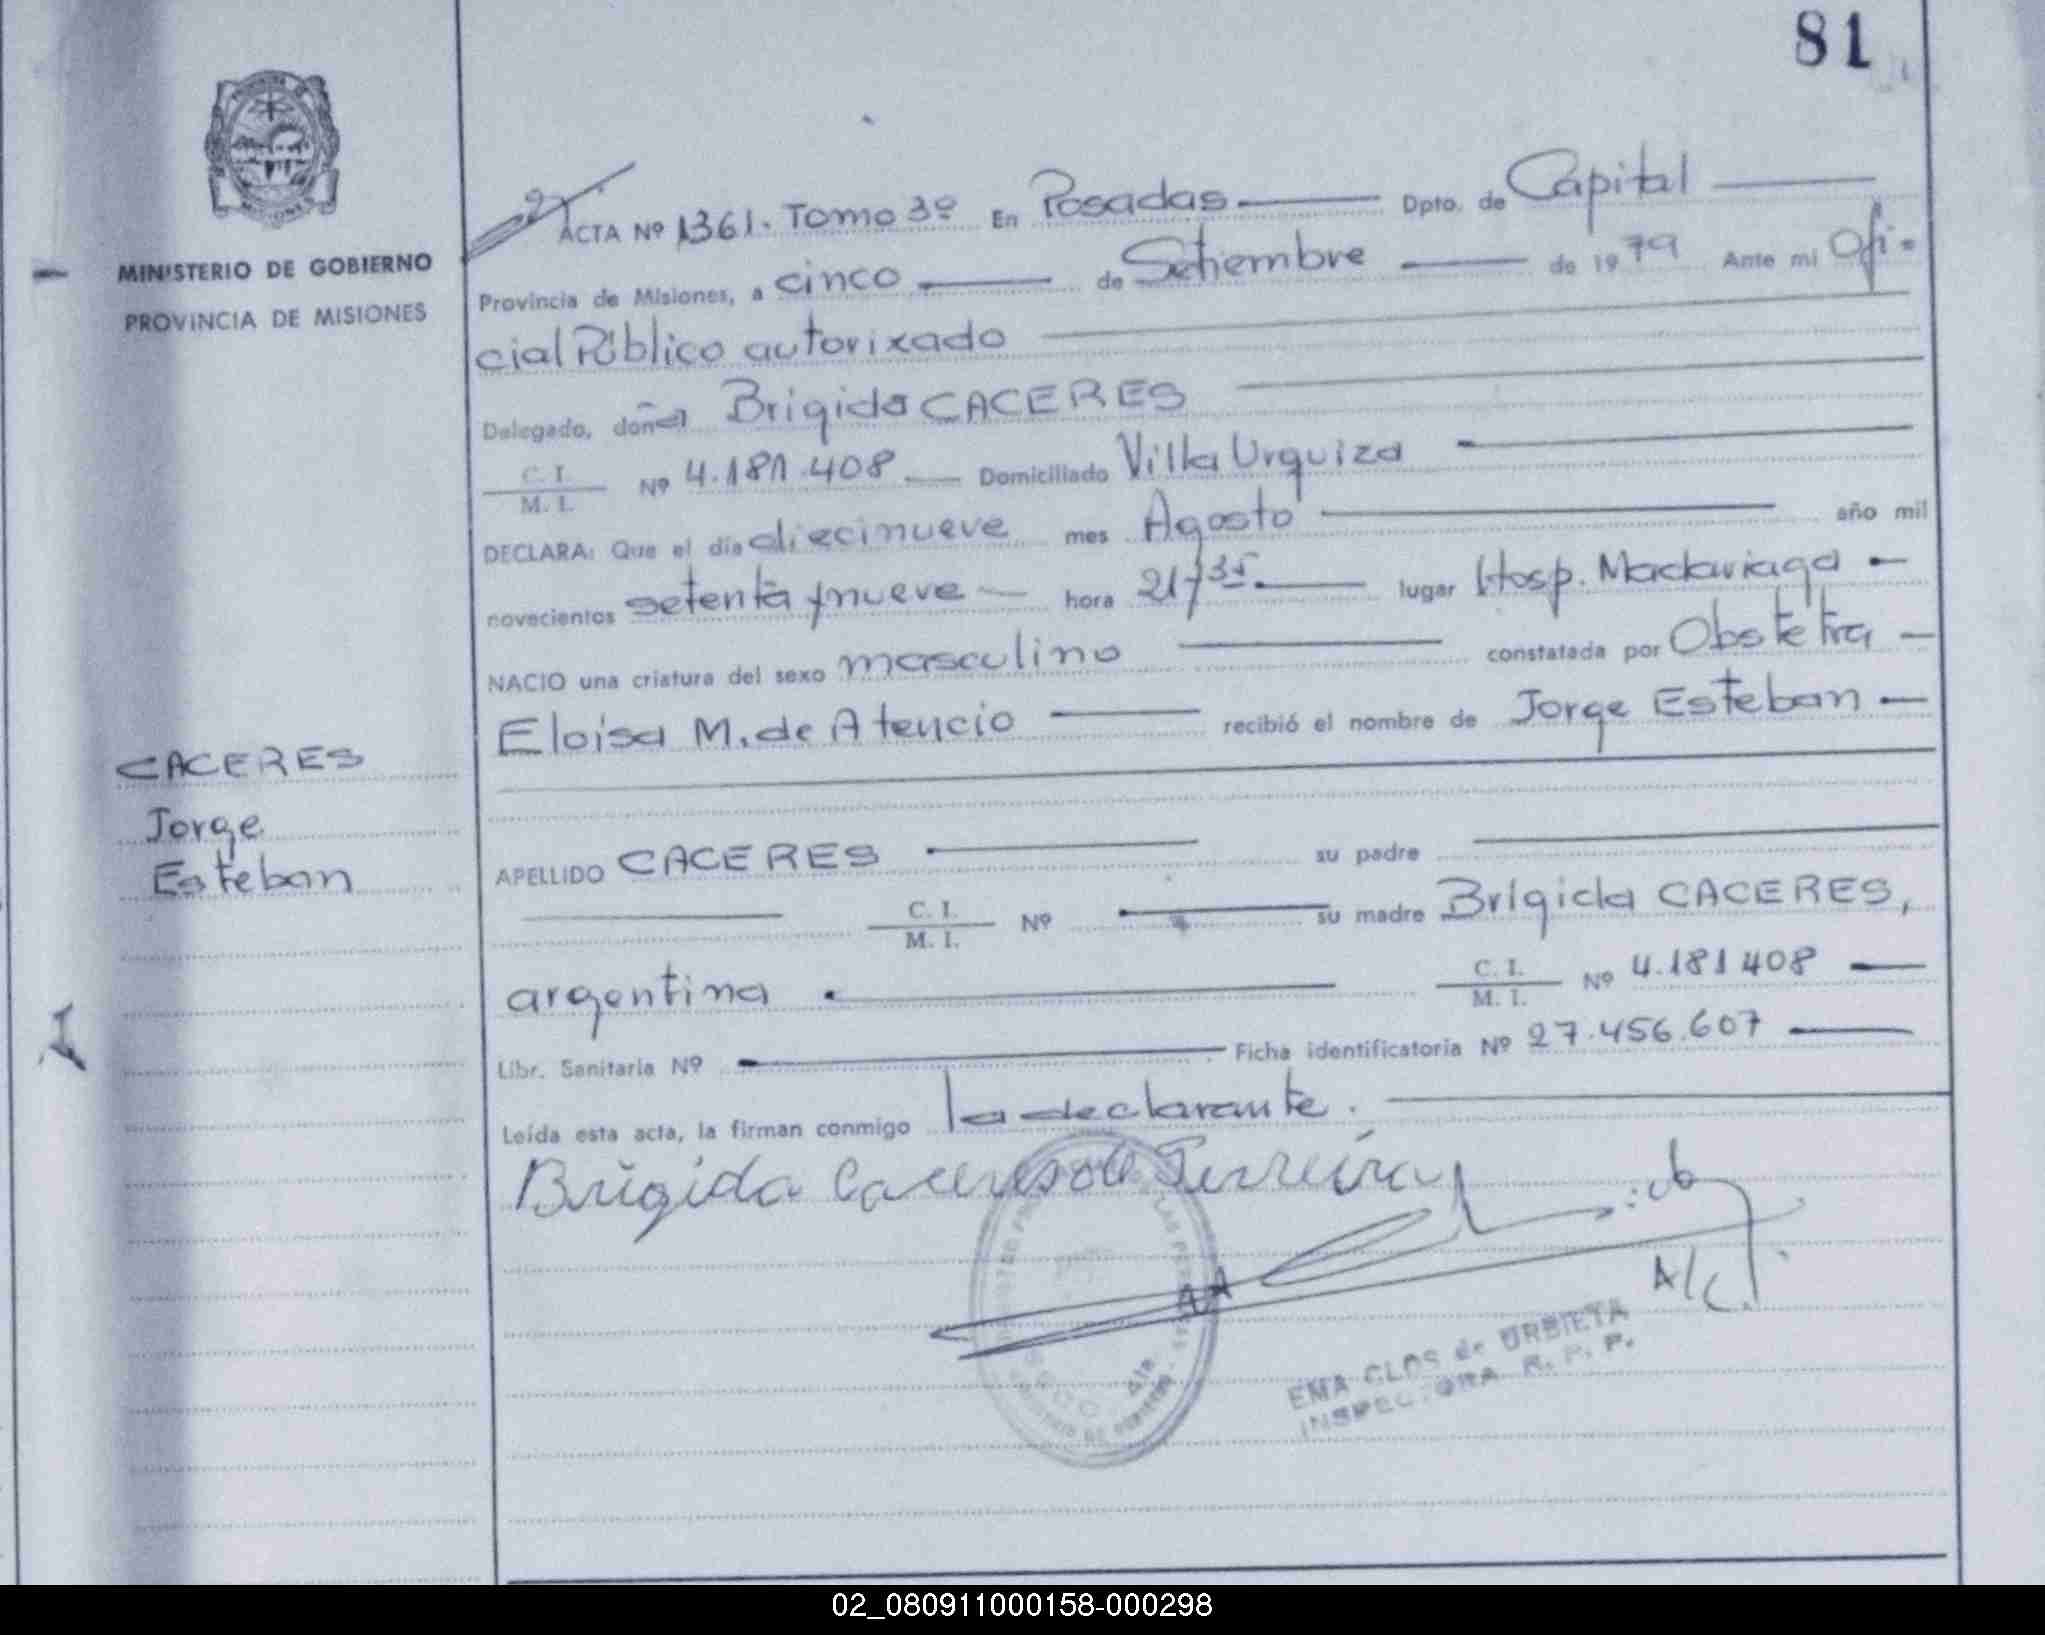 81
MINISTERIO DE GOBIERNO
PROVINCIA DE MISIONES
ACTA Nº 1361. Tomo 3º En Posadas Dpto. de Capital
Provincia de Misiones, a cinco de Setiembre de 1979 Ante mi Ofi=
cial Público autorixado
Delegado, doña Brigida CACERES
C. I.
M. I. Nº 4.181.408 Domiciliado Villa Urquiza
DECLARA: Que el día diecinueve mes Agosto año mil
novecientos setenta y nueve hora 21/35 lugar Hosp. Madariaga
NACIO una criatura del sexo masculino constatada por Obstetra
Eloisa M. de Atencio recibió el nombre de Jorge Esteban
CACERES
Jorge
Esteban
APELLIDO CACERES su padre
C. I.
M. I. Nº su madre Brígida CACERES,
argentina C. I.
M. I. Nº 4.181408
Libr. Sanitaria Nº Ficha identificatoria Nº 27.456.607
Leída esta acta, la firman conmigo la declarante.
Brigida Caceres de Ferreira
A/C.
EMA CLOS de URBIETA
INSPECTORA R. P. P.
02_080911000158-000298